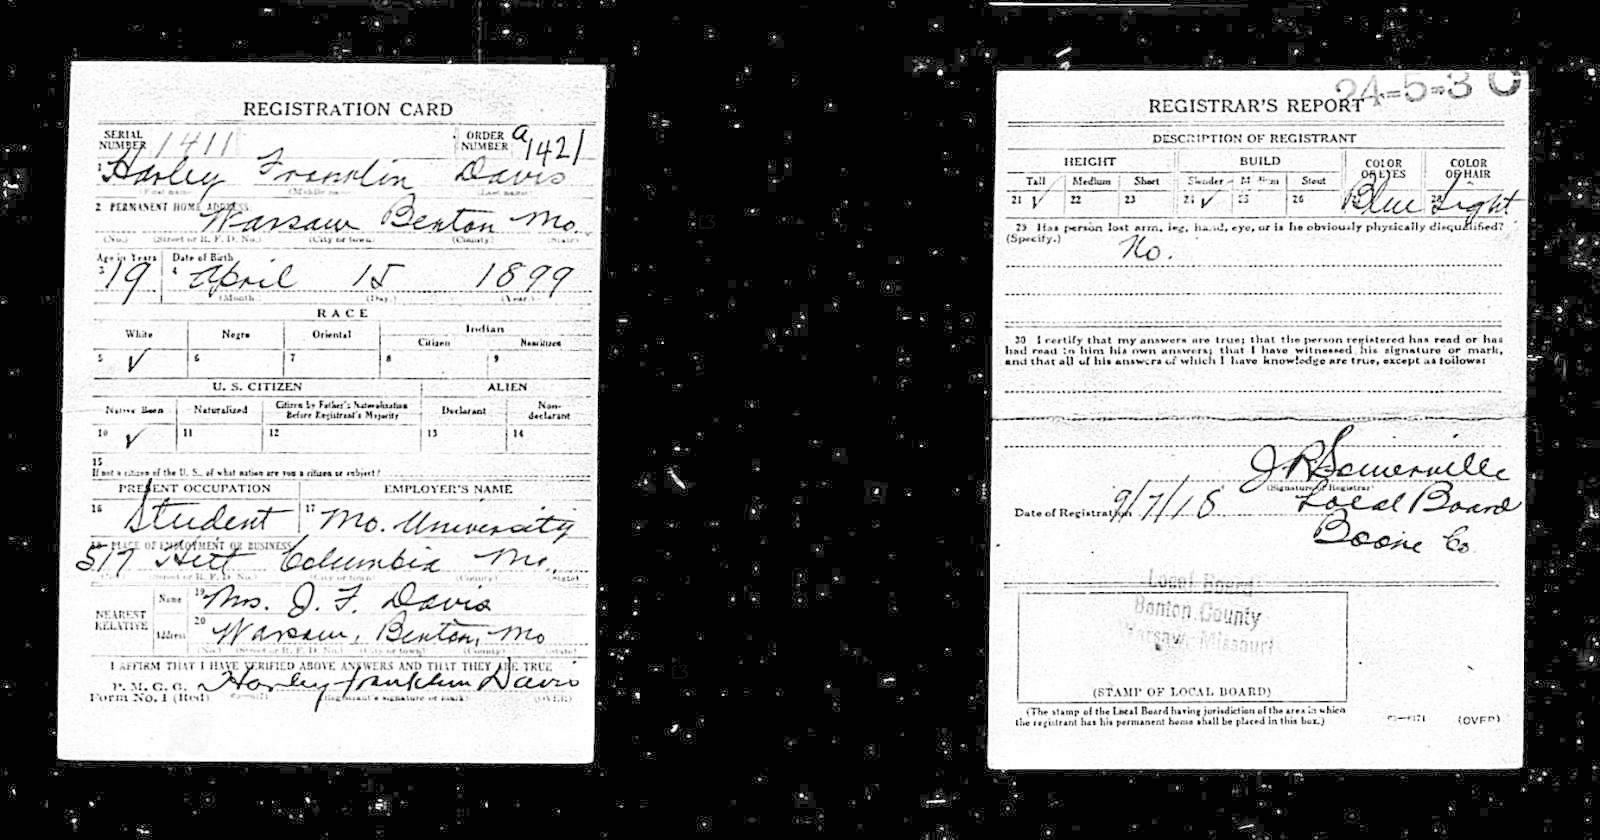 REGISTRATION CARD
SERIAL NUMBER 1411 ORDER NUMBER a1421
1 Harley Franklin Davis
(First name) (Middle name) (Last name)
2 PERMANENT HOME ADDRESS:
Warsaw Benton Mo.
(No.) (Street or R. F. D. No.) (City or town) (County) (State)
Age in Years Date of Birth
3 19 4 April 15 1899
(Month.) (Day.) (Year.)
RACE
White Negro Oriental Indian
Citizen Noncitizen
5 ✓ 6 7 8 9
U. S. CITIZEN ALIEN
Native Born Naturalized Citizen by Father's Naturalization Before Registrant's Majority Declarant Non-declarant
10 ✓ 11 12 13 14
15
If not a citizen of the U. S., of what nation are you a citizen or subject?
PRESENT OCCUPATION EMPLOYER'S NAME
16 Student 17 Mo. University
18 PLACE OF EMPLOYMENT OR BUSINESS:
517 Hitt Columbia Mo.
(No.) (Street or R. F. D. No.) (City or town) (County) (State)
NEAREST RELATIVE
Name 19 Mrs. J. F. Davis
Address 20 Warsaw, Benton, Mo
(No.) (Street or R. F. D. No.) (City or town) (County) (State)
I AFFIRM THAT I HAVE VERIFIED ABOVE ANSWERS AND THAT THEY ARE TRUE
P. M. G. O.
Form No. 1 (Red) Harley Franklin Davis
(Registrant's signature or mark) (OVER)
24-5-30
REGISTRAR'S REPORT
DESCRIPTION OF REGISTRANT
HEIGHT BUILD COLOR OF EYES COLOR OF HAIR
Tall Medium Short Slender Medium Stout
21 ✓ 22 23 24 ✓ 25 26 Blue 28 Light
29 Has person lost arm, leg, hand, eye, or is he obviously physically disqualified?
(Specify.) No.
30 I certify that my answers are true; that the person registered has read or has
had read to him his own answers; that I have witnessed his signature or mark,
and that all of his answers of which I have knowledge are true, except as follows:
J R Somerville
(Signature of Registrar)
Date of Registration 9/7/18 Local Board
Boone Co.
Local Board
Benton County
Warsaw, Missouri
(STAMP OF LOCAL BOARD)
(The stamp of the Local Board having jurisdiction of the area in which
the registrant has his permanent home shall be placed in this box.)
(OVER)